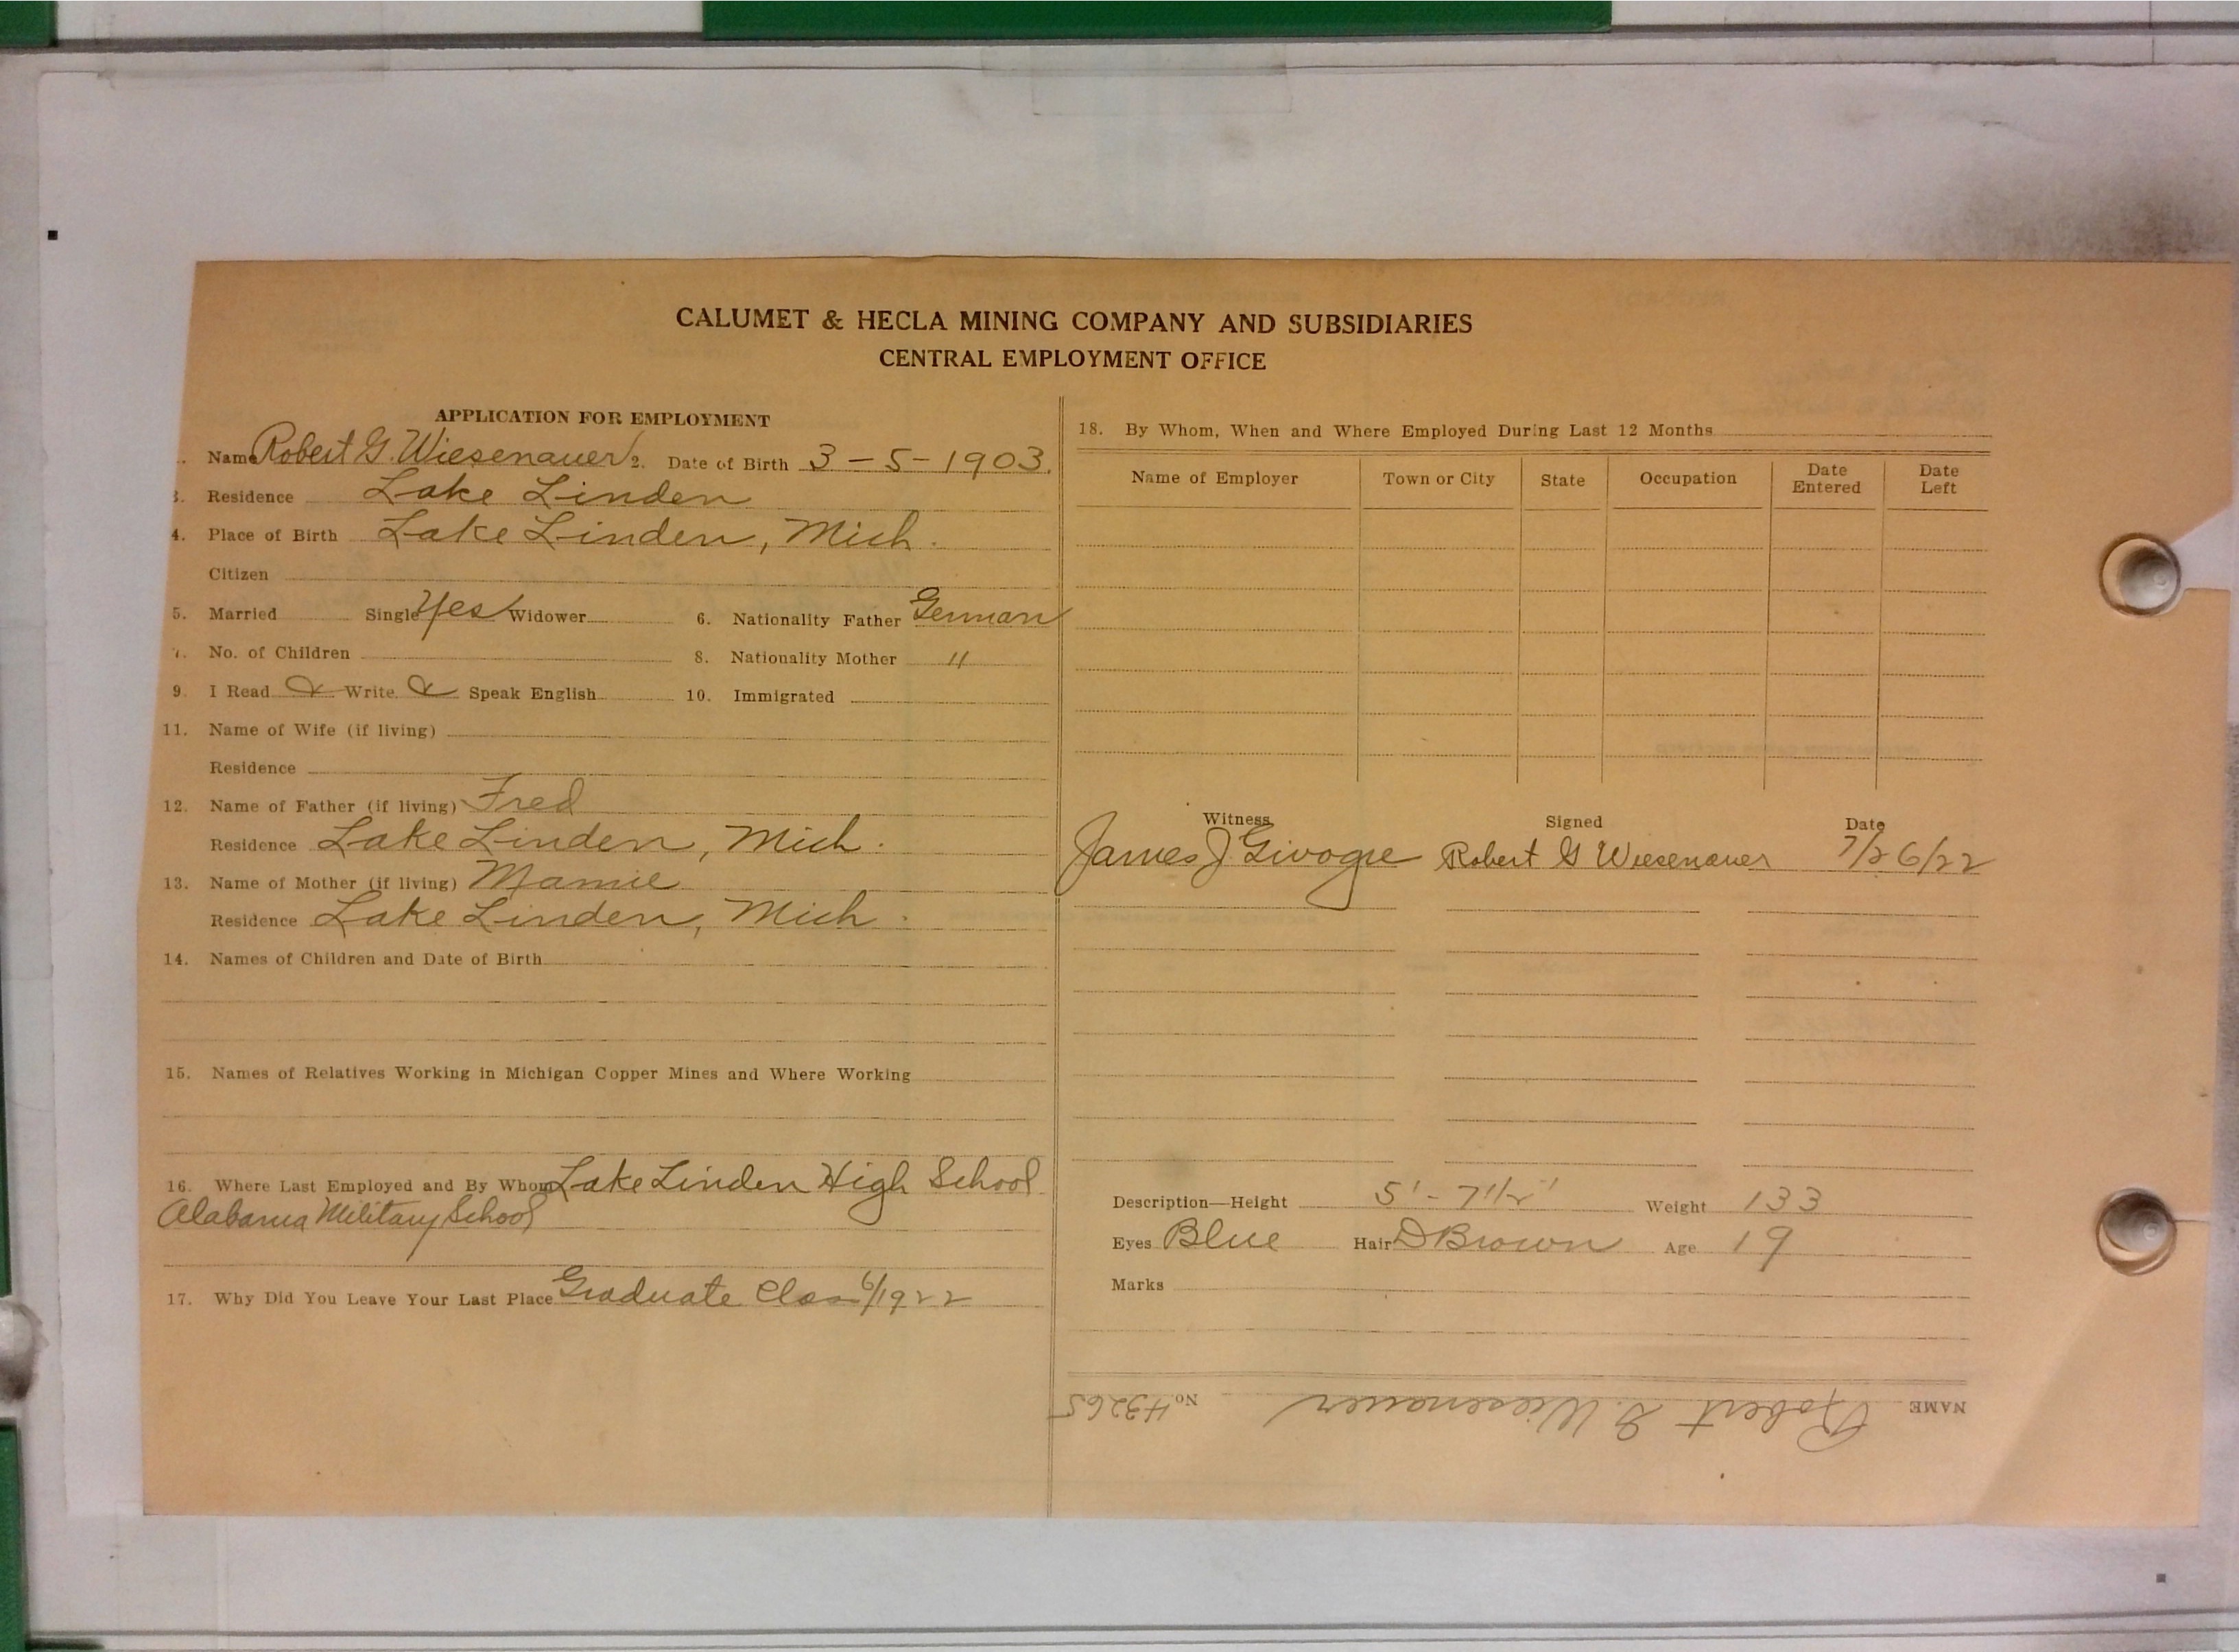 CALUMET & HECLA MINING COMPANY AND SUBSIDIARIES
CENTRAL EMPLOYMENT OFFICE
APPLICATION FOR EMPLOYMENT
Name Robert G. Wiesenauer 2. Date of Birth 3-5-1903.
3. Residence Lake Linden
4. Place of Birth Lake Linden, Mich.
Citizen
5. Married Single Yes Widower 6. Nationality Father German
7. No. of Children 8. Nationality Mother "
9. I Read & Write & Speak English 10. Immigrated
11. Name of Wife (if living)
Residence
12. Name of Father (if living) Fred
Residence Lake Linden, Mich.
13. Name of Mother (if living) Mamie
Residence Lake Linden, Mich.
14. Names of Children and Date of Birth
15. Names of Relatives Working in Michigan Copper Mines and Where Working
16. Where Last Employed and By Whom Lake Linden High School
Alabama Military School
17. Why Did You Leave Your Last Place Graduate Class 6/1922
18. By Whom, When and Where Employed During Last 12 Months
Name of Employer Town or City State Occupation Date Entered Date Left
Witness Signed Date
James J. Robert G Wiesenauer 7/26/22
Description—Height 5'-7 1/2" Weight 133
Eyes Blue Hair D Brown Age 19
Marks
NAME Robert G. Wiesenauer No. 43265